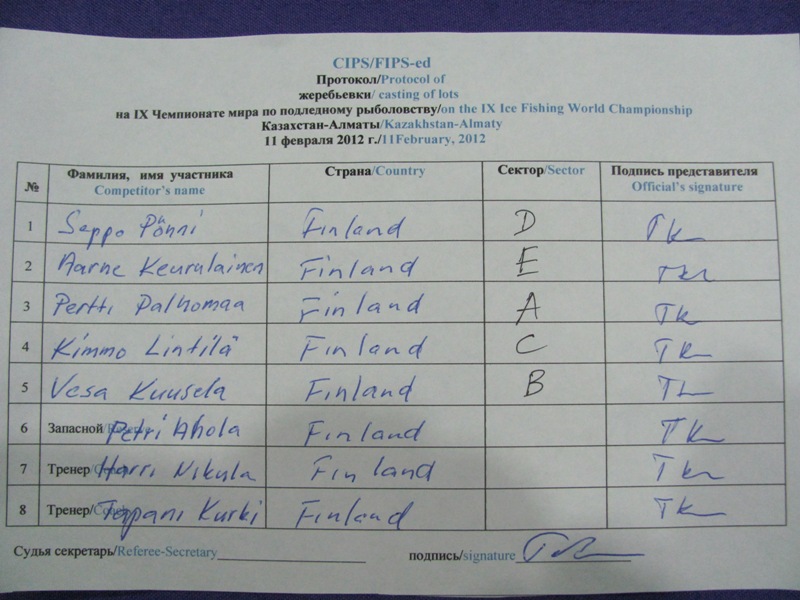 CIPS/FIPS-ed
Протокол/Protocol of
жеребьевки/ casting of lots
на IX Чемпионате мира по подледному рыболовству/on the IX Ice Fishing World Championship
Казахстан-Алматы/Kazakhstan-Almaty
11 февраля 2012 г./11February, 2012
№ Фамилия, имя участника Страна/Country Сектор/Sector Подпись представителя
Competitor's name Official's signature
1 Seppo Pönni Finland D TK
2 Aarne Keurulainen Finland E TK
3 Pertti Palhomaa Finland A TK
4 Kimmo Lintilä Finland C TK
5 Vesa Kuusela Finland B TK
6 Запасной/Reserve Petri Ahola Finland TK
7 Тренер/Coach Harri Nikula Finland TK
8 Тренер/Coach Tapani Kurki Finland TK
Судья секретарь/Referee-Secretary подпись/signature